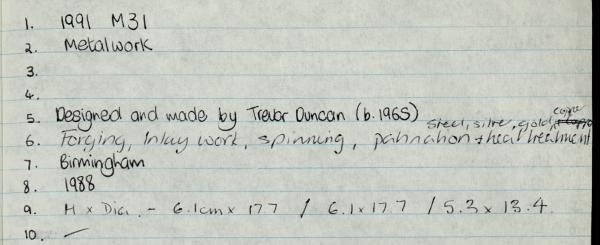 1. 1991 M31
2. Metalwork
3.
4.
5. Designed and made by Trevor Duncan (b.1965)
steel, silver, gold, copper
6. Forging, Inlay work, spinning, patination + heat treatment
7. Birmingham
8. 1988
9. H x Dia. - 6.1cm x 17.7 / 6.1 x 17.7 / 5.3 x 13.4
10. —